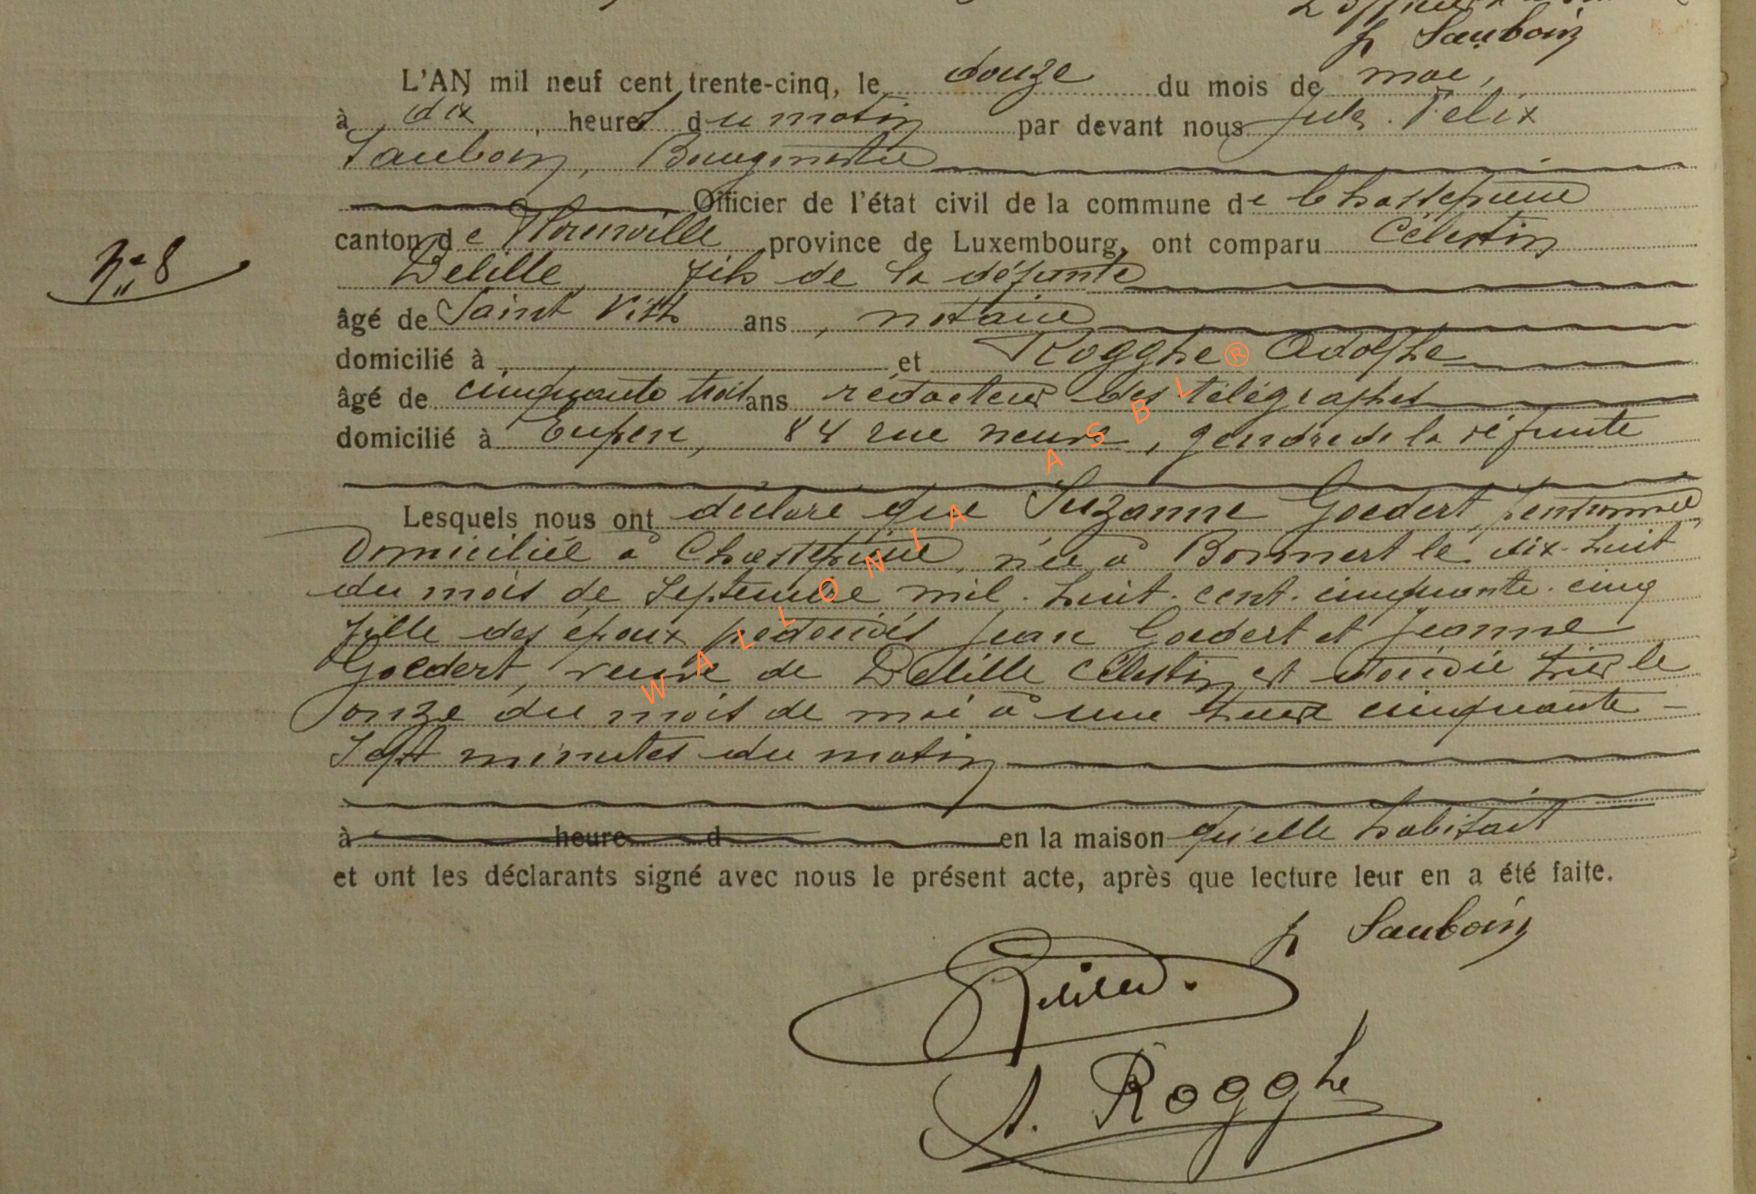 Sauboin
L'AN mil neuf cent trente-cinq, le douze du mois de mai,
à dix heures du matin par devant nous Jules Félix
Sauboin, Bourgmestre
Officier de l'état civil de la commune de Chassepierre
canton de Florenville province de Luxembourg, ont comparu Célestin
N° 8
Delille, fils de la défunte
âgé de Saint Vith ans, notaire
domicilié à et Rogghe Adolphe
âgé de cinquante trois ans rédacteur des télégraphes
domicilié à Eupen, 84 rue neuve, gendre de la défunte
Lesquels nous ont déclaré que Suzanne Goedert, pensionnée
domiciliée à Chassepierre, née à Bonnert le dix-huit
du mois de septembre mil-huit-cent-cinquante-cinq
fille des époux Jean Goedert et Jeanne
Goedert, veuve de Delille Célestin est décédée hier le
onze du mois de mai à une heure cinquante-
sept minutes du matin
à heure d en la maison qu'elle habitait
et ont les déclarants signé avec nous le présent acte, après que lecture leur en a été faite.
Sauboin
A. Rogghe
WALLONIA ASBL ®